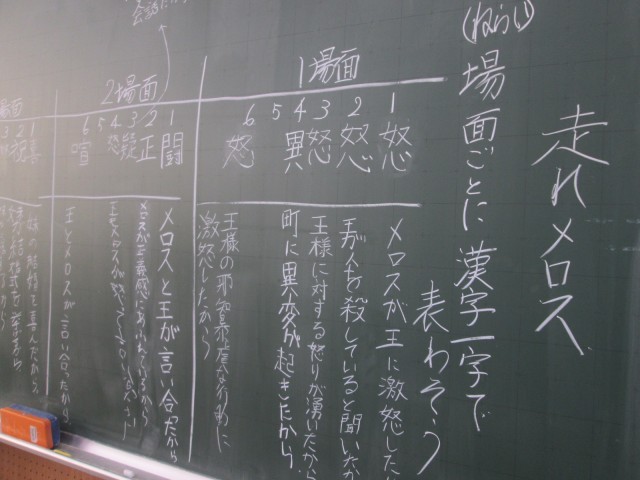 走れメロス
(ねらい)
場面ごとに漢字一字で
表わそう
1場面
1 怒
2 怒
3 怒
4 異
5
6 怒
メロスが王に激怒した
王が人を殺していると聞いたか
王様に対する怒りが湧いたから
町に異変が起きたから
王様の
激怒したから
2場面
1 闘
2 正
3
4 怒
5
6 喧
メロスと王が言い合ったから
メロスが正義感
王とメロスが
王とメロスが言い合ったから
場面
1 喜
2
3
妹の結婚を喜んだから